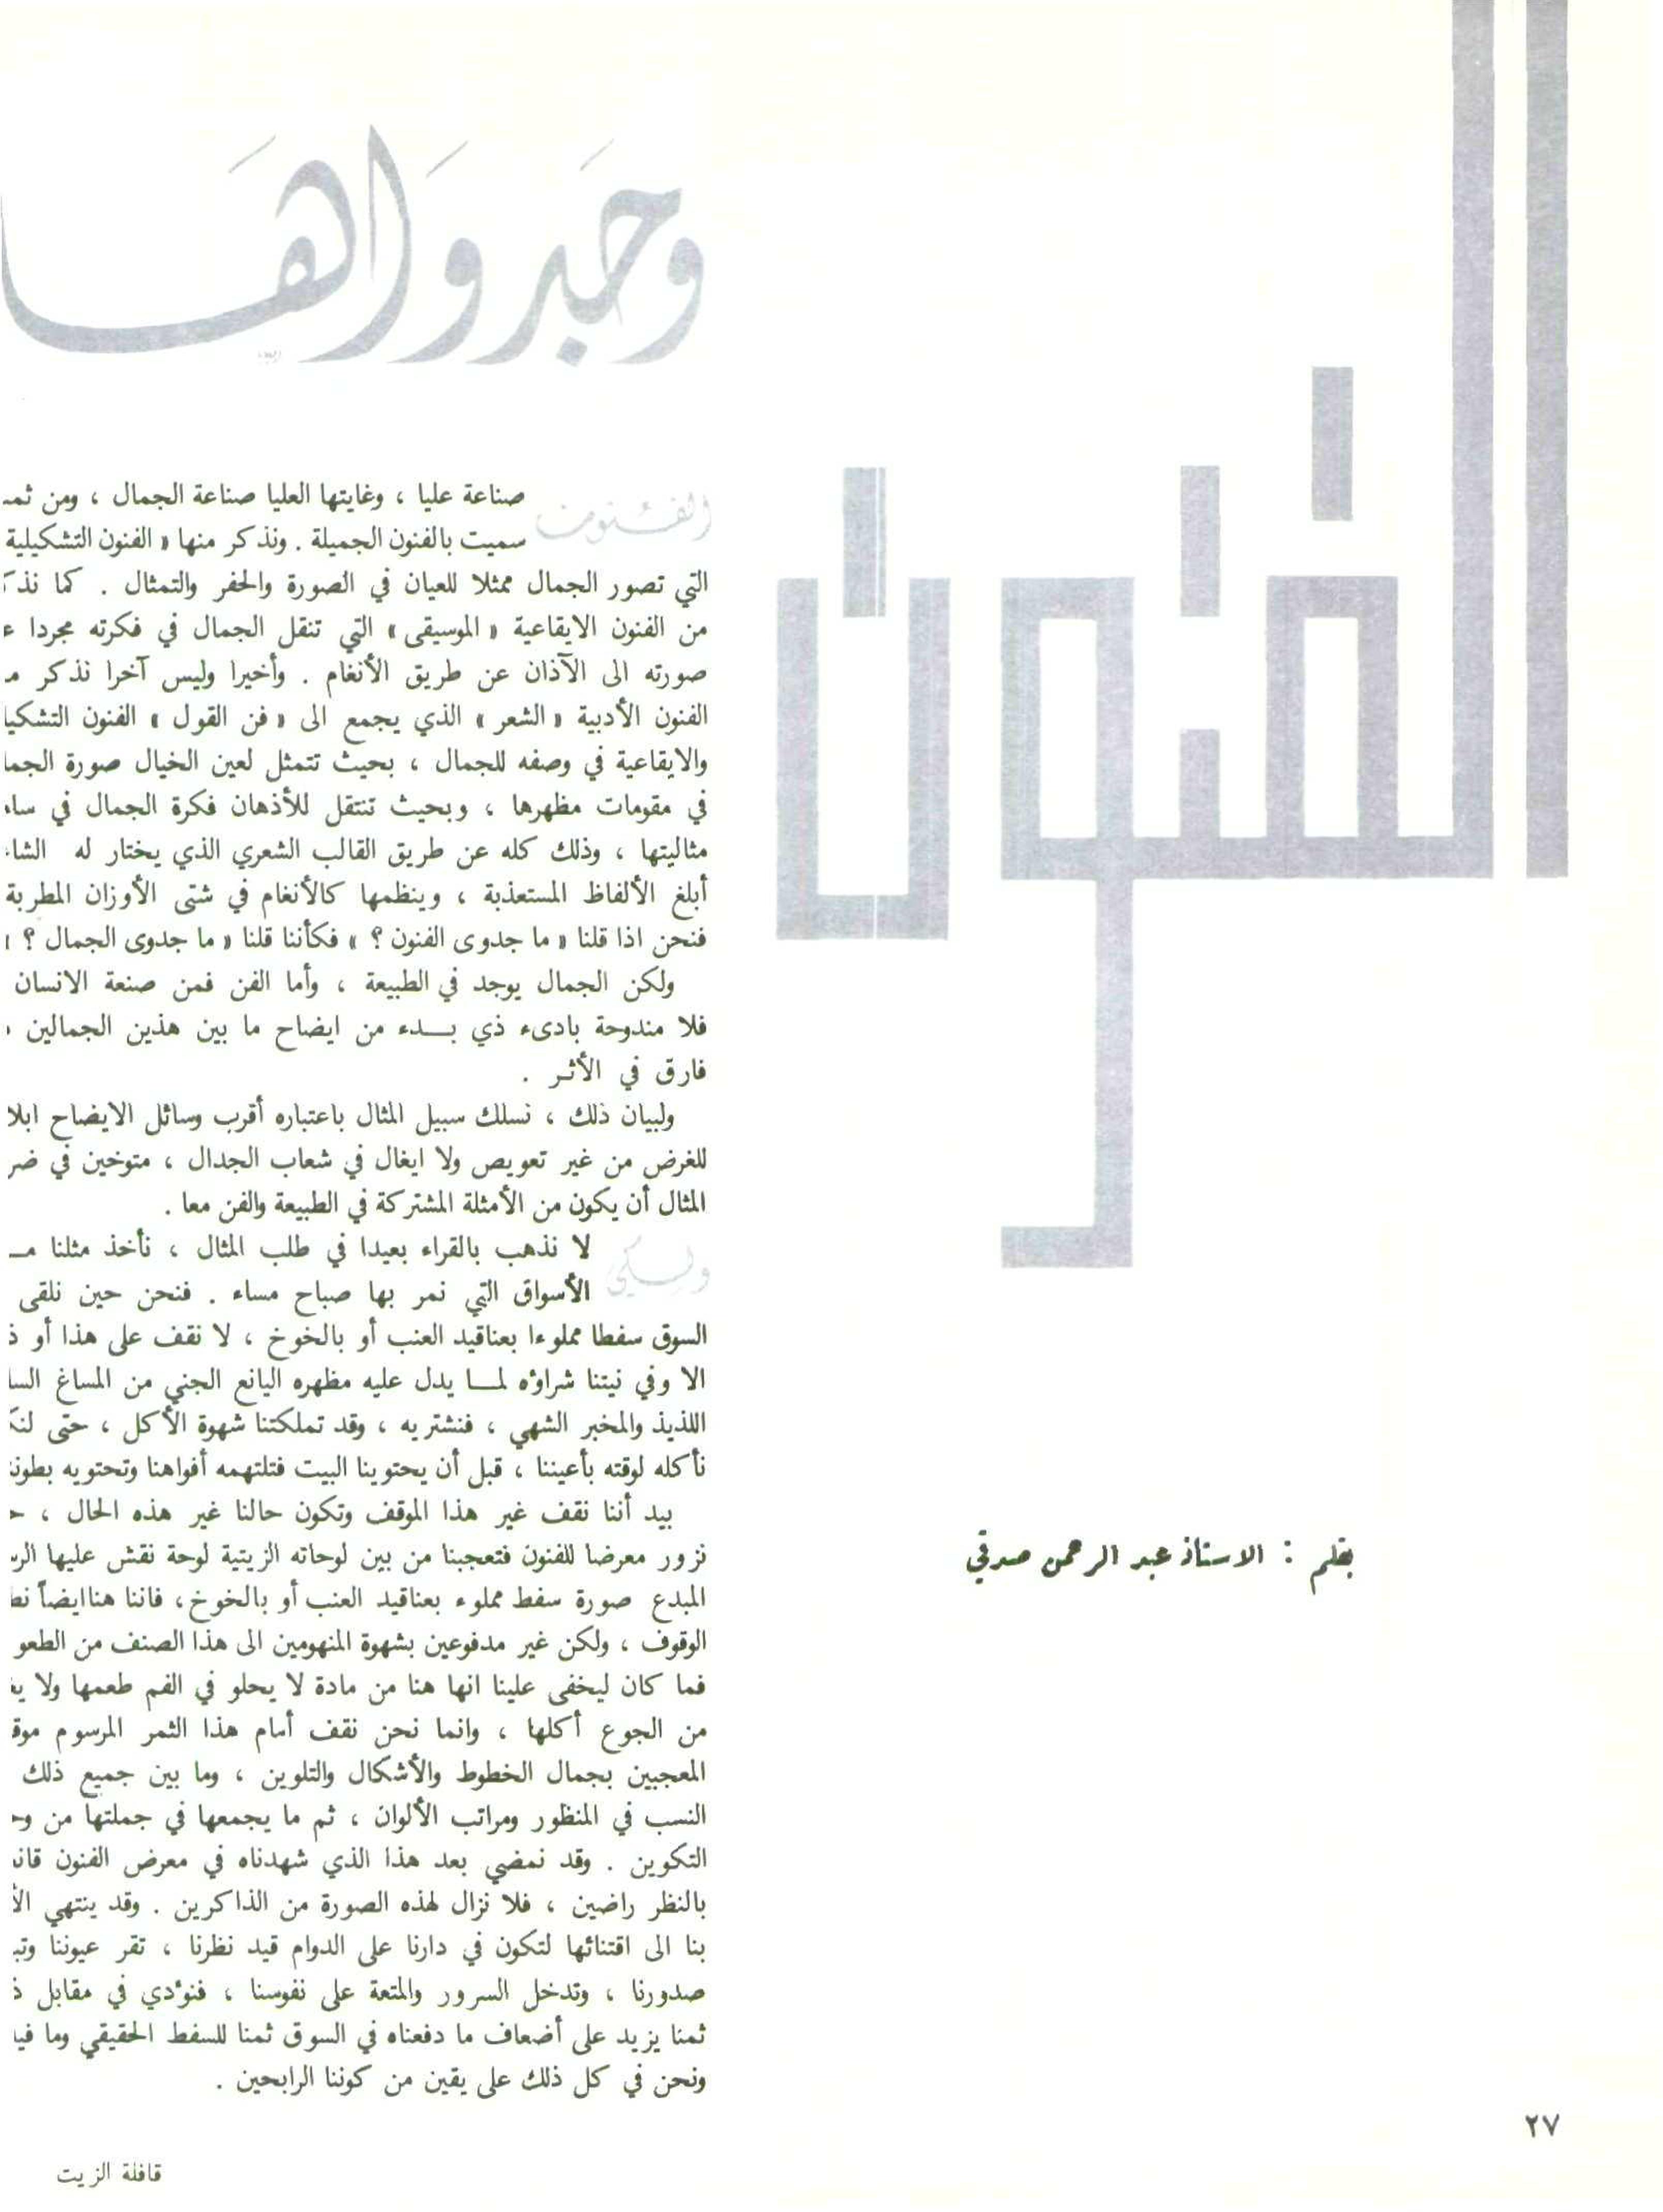 الفنون
وجدواها
بقلم : الاستاذ عبد الرحمن صدقي
الفنون صناعة عليا ، وغايتها العليا صناعة الجمال ، ومن
سميت بالفنون الجميلة . ونذكر منها « الفنون التشكيلية
التي تصور الجمال ممثلا للعيان في الصورة والحفر والتمثال . كما
من الفنون الايقاعية « الموسيقى » التي تنقل الجمال في فكرته مجردا
صورته الى الآذان عن طريق الأنغام . وأخيرا وليس آخرا نذكر
الفنون الأدبية « الشعر » الذي يجمع الى « فن القول » الفنون
والايقاعية في وصفه للجمال ، بحيث تتمثل لعين الخيال صورة
في مقومات مظهرها ، وبحيث تنتقل للأذهان فكرة الجمال في
مثاليتها ، وذلك كله عن طريق القالب الشعري الذي يختار له
أبلغ الألفاظ المستعذبة ، وينظمها كالأنغام في شتى الأوزان المطربة
فنحن اذا قلنا « ما جدوى الفنون ؟ » فكأننا قلنا « ما جدوى الجمال ؟ »
ولكن الجمال يوجد في الطبيعة ، وأما الفن فمن صنعة الانسان
فلا مندوحة بادىء ذي بــدء من ايضاح ما بين هذين الجمالين
فارق في الأثر .
ولبيان ذلك ، نسلك سبيل المثال باعتباره أقرب وسائل الايضاح
للغرض من غير تعويص ولا ايغال في شعاب الجدال ، متوخين في
المثال أن يكون من الأمثلة المشتركة في الطبيعة والفن معا .
ولكي لا نذهب بالقراء بعيدا في طلب المثال ، نأخذ مثلنا
الأسواق التي نمر بها صباح مساء . فنحن حين نلقى
السوق سفطا مملوءا بعناقيد العنب أو بالخوخ ، لا نقف على هذا أو
الا وفي نيتنا شراؤه لمــا يدل عليه مظهره اليانع الجني من المساغ
اللذيذ والمخبر الشهي ، فنشتريه ، وقد تملكتنا شهوة الأكل ، حتى
نأكله لوقته بأعيننا ، قبل أن يحتوينا البيت فتلتهمه أفواهنا وتحتويه
بيد أننا نقف غير هذا الموقف وتكون حالنا غير هذه الحال ،
نزور معرضا للفنون فتعجبنا من بين لوحاته الزيتية لوحة نقش عليها
المبدع صورة سفط مملوء بعناقيد العنب أو بالخوخ، فاننا هنا ايضاً
الوقوف ، ولكن غير مدفوعين بشهوة المنهومين الى هذا الصنف من
فما كان ليخفى علينا انها هنا من مادة لا يحلو في الفم طعمها ولا
من الجوع أكلها ، وانما نحن نقف أمام هذا الثمر المرسوم
المعجبين بجمال الخطوط والأشكال والتلوين ، وما بين جميع ذلك
النسب في المنظور ومراتب الألوان ، ثم ما يجمعها في جملتها من
التكوين . وقد نمضي بعد هذا الذي شهدناه في معرض الفنون
بالنظر راضين ، فلا نزال لهذه الصورة من الذاكرين . وقد ينتهي
بنا الى اقتنائها لتكون في دارنا على الدوام قيد نظرنا ، تقر عيوننا
صدورنا ، وتدخل السرور والمتعة على نفوسنا ، فنؤدي في مقابل
ثمنا يزيد على أضعاف ما دفعناه في السوق ثمنا للسفط الحقيقي وما
ونحن في كل ذلك على يقين من كوننا الرابحين .
٢٧
قافلة الزيت